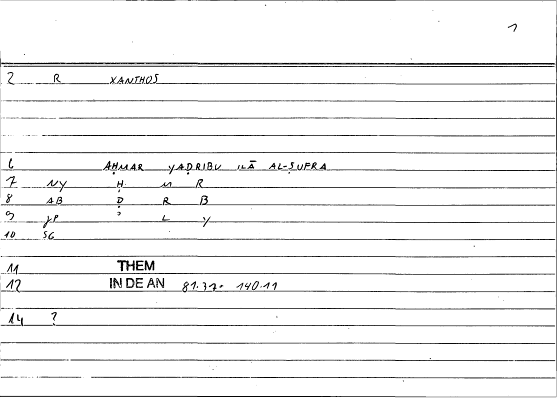 1
2 R XANTHOS
6 AḤMAR YAḌRIBU ILĀ AL-ṢUFRA
7 NY Ḥ M R
8 AB Ḍ R B
9 JP ʾ L Y
10 SG
11 THEM
12 IN DE AN 81.37. 140.11
14 ?